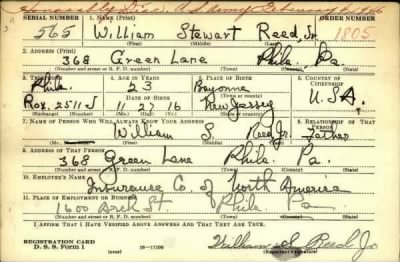 Honorably Disc.
SERIAL NUMBER 1. Name (Print)
565 William Stewart Reed, Jr. 1805
(First) (Middle) (Last)
2. Address (Print)
368 Green Lane Phila. Pa.
(Number and street or R. F. D. number) (Town) (County) (State)
3. Telephone 4. Age in Years 5. Place of Birth 6. Country of Citizenship
Phila. 23 Bayonne
Date of Birth (Town or county) U.S.A.
Rox. 2511 J 11 27 16 New Jersey
(Exchange) (Number) (Mo.) (Day) (Yr.) (State or country)
7. Name of Person Who Will Always Know Your Address 8. Relationship of That Person
William S. Reed Father
(Mr., Mrs., Miss) (First) (Middle) (Last)
9. Address of That Person
368 Green Lane Phila. Pa.
(Number and street or R. F. D. number) (Town) (County) (State)
10. Employer's Name
Insurance Co. of North America
11. Place of Employment or Business
1600 Arch St Phila Pa
(Number and street or R. F. D. number) (Town) (County) (State)
I Affirm That I Have Verified Above Answers and That They Are True.
REGISTRATION CARD
D. S. S. Form 1 (over) 16—17105 William S. Reed Jr.